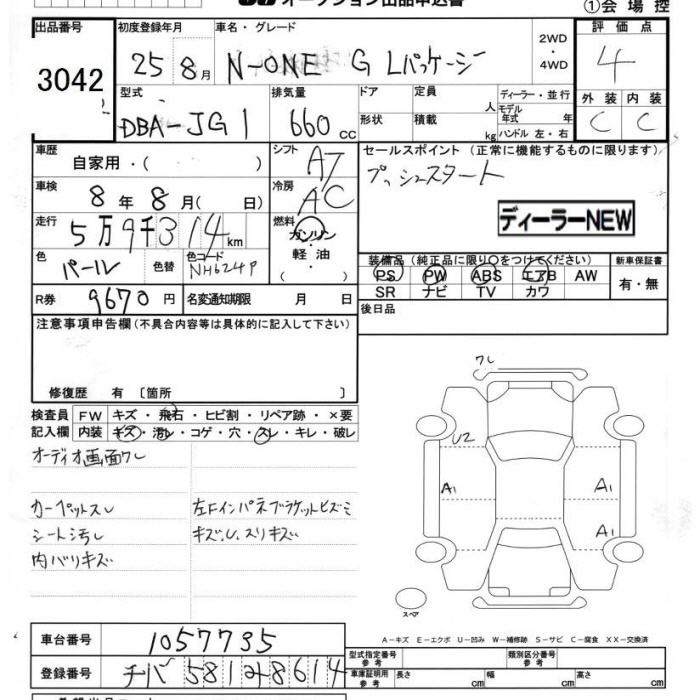 オークション出品申込書
①会場控
出品番号
3042
初度登録年月
25 8月
車名・グレード
N-ONE G Lパッケージ
2WD
・
4WD
評価点
4
外装 内装
C C
型式
DBA-JG1
排気量
660 cc
ドア
形状
定員
人
積載
kg
ディーラー・並行
モデル
年式 年
ハンドル 左・右
車歴
自家用・( )
シフト
AT
セールスポイント (正常に機能するものに限ります)
プッシュスタート
車検
8年8月( 日)
冷房
AC
走行
5万9千314km
燃料
ガソリン
・
軽油
・
( )
ディーラーNEW
色
パール
色替
色コード
NH624P
装備品(純正品に限り○をつけてください)
PS PW ABS エアB AW
SR ナビ TV カワ
新車保証書
有・無
R券 9670円
名変通知期限 月 日
後日品
注意事項申告欄(不具合内容等は具体的に記入して下さい)
修復歴 有〔箇所 〕
検査員
記入欄
FW キズ・飛石・ヒビ割・リペア跡・×要
内装 キズ・汚レ・コゲ・穴・スレ・キレ・破レ
オーディオ画面ワレ
カーペットスレ
シート汚レ
内バリキズ
左Fインパネブラケットヒズミ
キズ、U、スリキズ
ワレ
U2
A1
A1
A1
スペア
A-キズ E-エクボ U-凹み W-補修跡 S-サビ C-腐食 XX-交換済
車台番号
1057735
登録番号
型式指定番号
参考
類別区分番号
参考
車庫証明用
参考
長さ cm
幅 cm
高さ cm